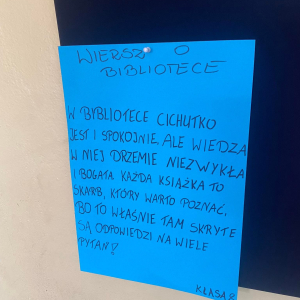 WIERSZ O
BIBLIOTECE
W BYBLIOTECE CICHUTKO
JEST I SPOKOJNIE, ALE WIEDZA
W NIEJ DRZEMIE NIEZWYKŁA
I BOGATA KAŻDA KSIĄŻKA TO
SKARB, KTÓRY WARTO POZNAĆ,
BO TO WŁAŚNIE TAM SKRYTE
SĄ ODPOWIEDZI NA WIELE
PYTAŃ!
KLASA 8